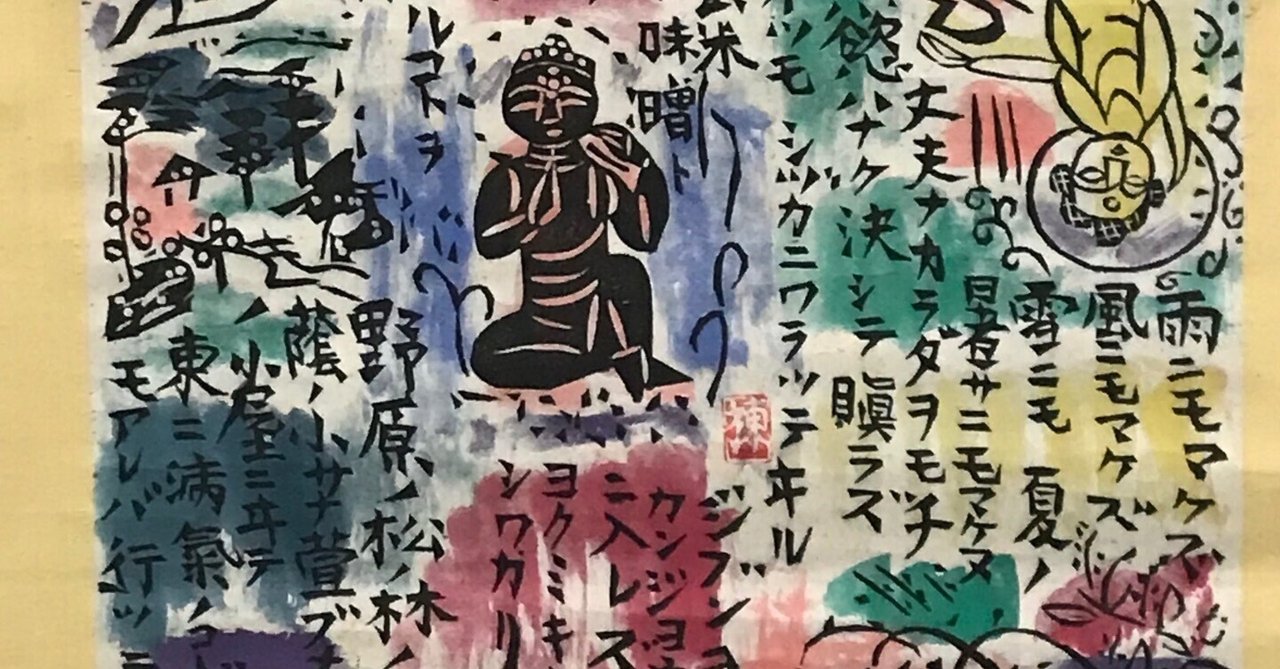 雨ニモマケズ
風ニモマケズ
雪ニモ夏ノ
暑サニモマケヌ
丈夫ナカラダヲモチ
慾ハナク決シテ瞋ラズ
イツモシヅカニワラッテヰル
玄米
味噌ト
ジブンヲ
カンジョウ
ニ入レズ
ヨクミキ
シワカリ
ルコトヲ
野原ノ松ノ林ノ
蔭ノ小サナ萱ブ
ノ小屋ニヰテ
東ニ病氣ノコド
モアレバ行ッテ